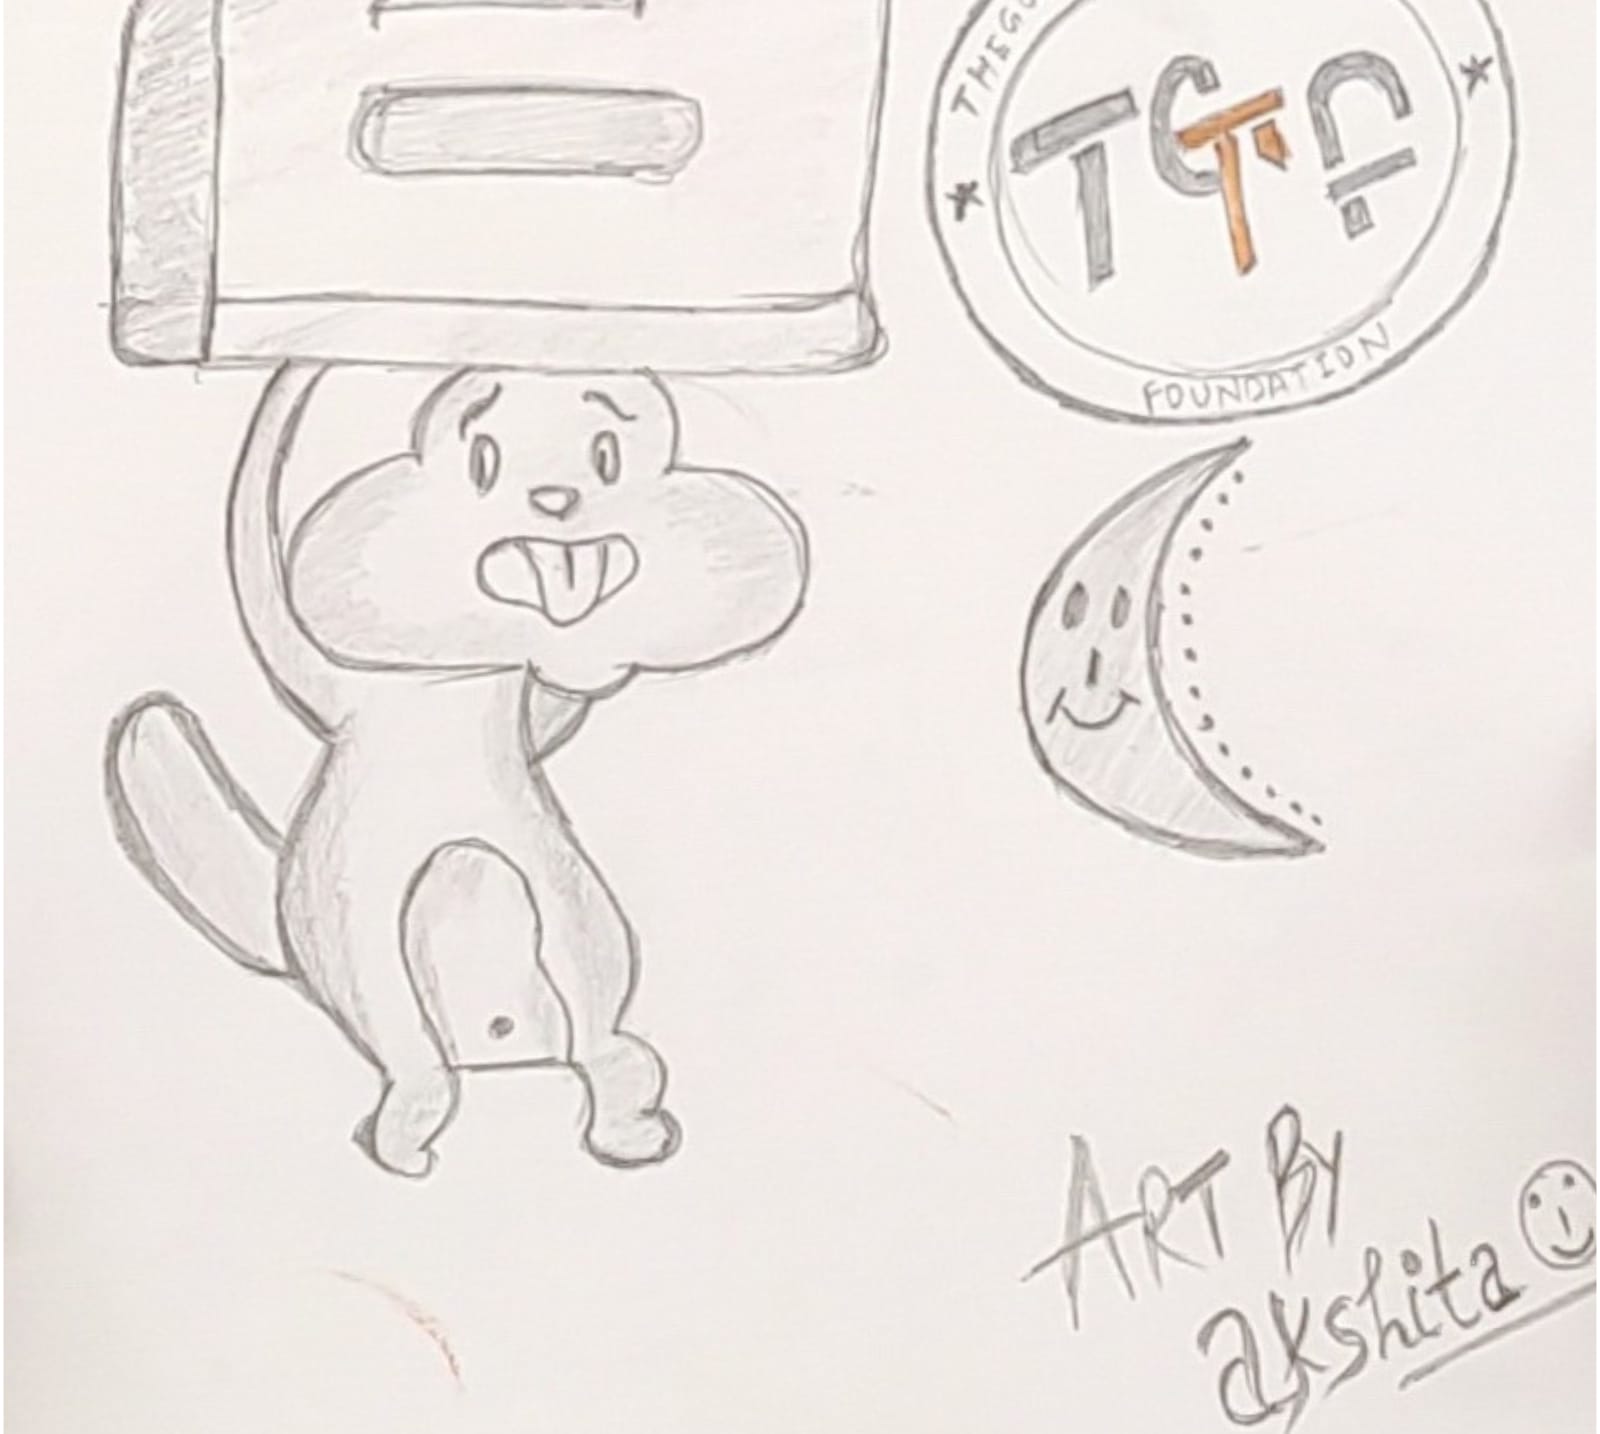 TGTF
FOUNDATION
ART BY
akshita